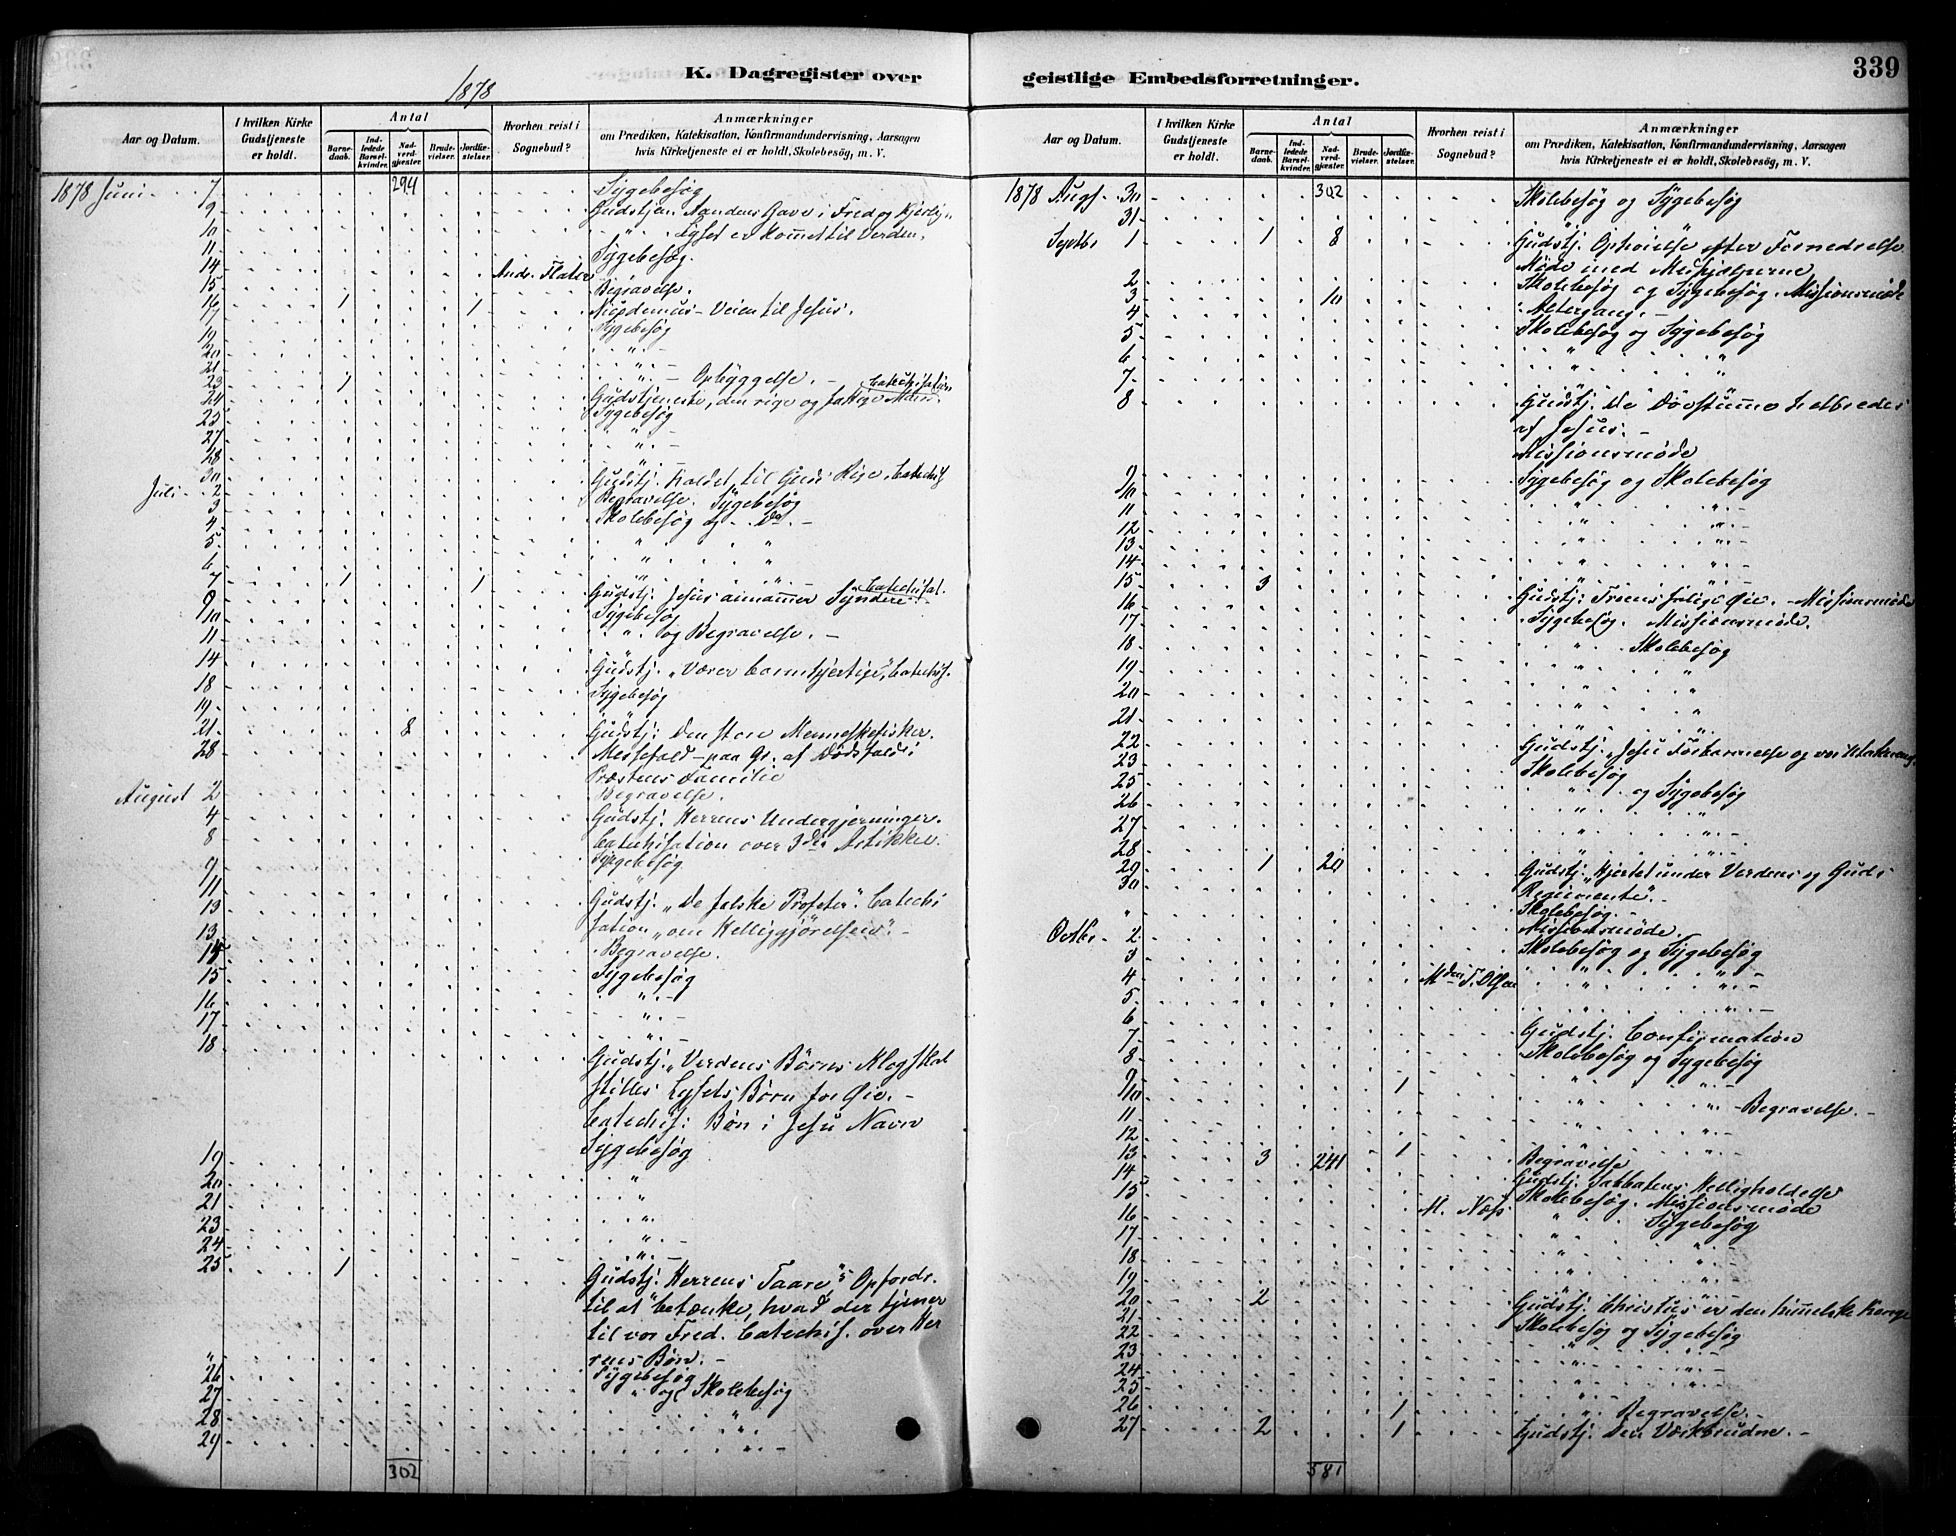 339
K. Dagregister over geistlige Embedsforretninger.
1878
Aar og Datum.
I hvilken Kirke Gudstjeneste er holdt.
Antal
Barnedaab.
Indledede Barselkvinder.
Nadverdgjæster.
Brudevielser.
Jordfæstelser.
Hvorhen reist i Sognebud?
Anmærkninger
om Prædiken, Katekisation, Konfirmandundervisning, Aarsagen
hvis Kirketjeneste ei er holdt, Skolebesög, m. V.
1878 Juni 7 294 Sygebesøg
9 Gudstjen. Aandens Gave i Fred og Kjærlig
10 " Lyset er kommet til Verden.
11 Sygebesøg.
14 Begravelse.
15
16 1 1 Nicodemus - Veien til Jesus.
17 Sygebesøg
19 "
20
21 " - Opbyggelse. -
23 1 Gudstjeneste, den rige og fattige Mand. Catechisation
24 Sygebesøg
25 "
27 "
28
30 Gudstj. kaldet til Guds Rige. Catechis
Juli 2 Begravelse. Sygebesøg
3 Skolebesøg og Do. -
4 " "
5 " "
6 " "
7 1 1 Gudstj. Jesus annammer Syndere. Catechisat.
9 Sygebesøg
10 " og Begravelse. -
11
14 Gudstj. "Værer barmhjertige", Catechis.
18 Sygebesøg
19 "
21 8 Gudstj. Den store Menneskefisker.
28 Messefald - paa Gr. af Dødsfald i
Præstens Familie
August 2 Begravelse.
4 Gudstj. Herrens Undergjerninger.
8 Catechisation over 3die Artikkel.
9 Sygebesøg
11 Gudstj. "De falske Profeter". Catechi
13 sation "om Helliggjørelsen". -
13 Begravelse.
14 Sygebesøg
15 " -
16 " -
17 " -
18 Gudstj. "Verdens Børns Klogskab
stilles Lysets Børn for Øie. -
Catechis: Bøn i Jesu Navn
19 Sygebesøg
20 "
21 "
23 "
24 " -
25 1 Gudstj. Herrens Taare, Opfordr.
til at betænke, hvad der tjener
til vor Fred. Catechis. over Her
" rens Bøn. -
26 Sygebesøg
27 " og Skolebesøg
28 " "
29 " -
302
Aar og Datum.
I hvilken Kirke Gudstjeneste er holdt.
Antal
Barnedaab.
Indledede Barselkvinder.
Nadverdgjæster.
Brudevielser.
Jordfæstelser.
Hvorhen reist i Sognebud?
Anmærkninger
om Prædiken, Katekisation, Konfirmandundervisning, Aarsagen
hvis Kirketjeneste ei er holdt, Skolebesög, m. V.
1878 Augs. 30 302 Skolebesøg og Sygebesøg
31 " "
Septbr 1 1 8 Gudstj. Ophøielse efter Fornedrelse
Møde med
2 Skolebesøg og Sygebesøg. Missionsmøde
3 10 Altergang. -
4 Skolebesøg og Sygebesøg
5 " "
6 " "
7
8 Gudstj. De Døvstumme helbredes
af Jesus. -
Missionsmøde
9 Sygebesøg og Skolebesøg
10 " " -
11 " " -
12 " " -
13 " " -
14 " " -
15 3 Gudstj: Troens Øie. - Missionsmøde
16 Sygebesøg. Missionsmøde.
17 " Skolebesøg
18 "
19 " "
20 " "
21 " "
22 Gudstj. "Jesu Forbarmelse og vor
23 Skolebesøg
25 " og Sygebesøg
26 " "
27 " " -
28 " " -
29 1 20 Gudstj. "Hjertet under Verdens og Guds
30 Regimente". -
Skolebesøg. -
" Missionsmøde.
Octbr. 2 Skolebesøg og Sygebesøg
3 " " -
4 " " -
5
6 Gudstj. Confirmation
7 Skolebesøg og Sygebesøg
8 " " -
9 1 " " - Begravelse. -
10 " " -
11
12 " " -
13 3 241 1 Begravelse
14 Gudstj. Sabbatens Helligholdelse
15 Skolebesøg. Missionsmøde
16 M. Næss " Sygebesøg
17 " " -
18 " " -
19 " " -
20 2 Gudstj. Christus er den himmelske Konge
21 Skolebesøg og Sygebesøg
22 " " -
23 " " -
24
25 "
26 1 " Begravelse. -
27 2 1 Gudstj. Den Værkbrudne. -
581